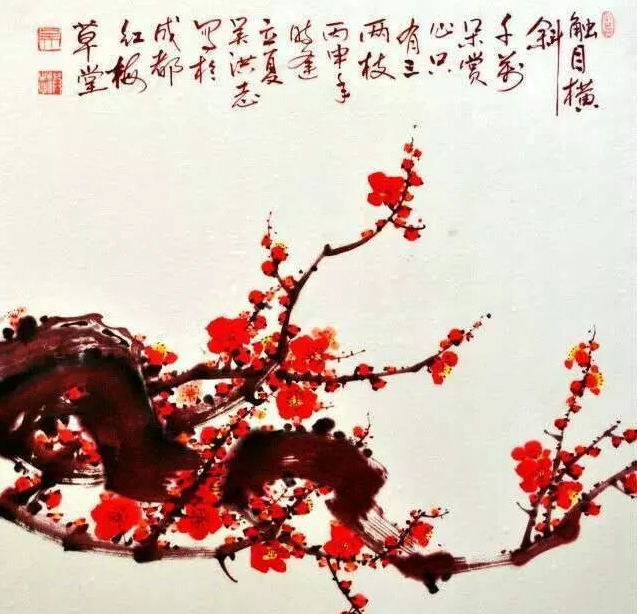 触目横
斜
千萬
朵赏
心只
有三
两枝
丙申年
时逢
立夏
吴洪志
写於
成都
红梅
草堂